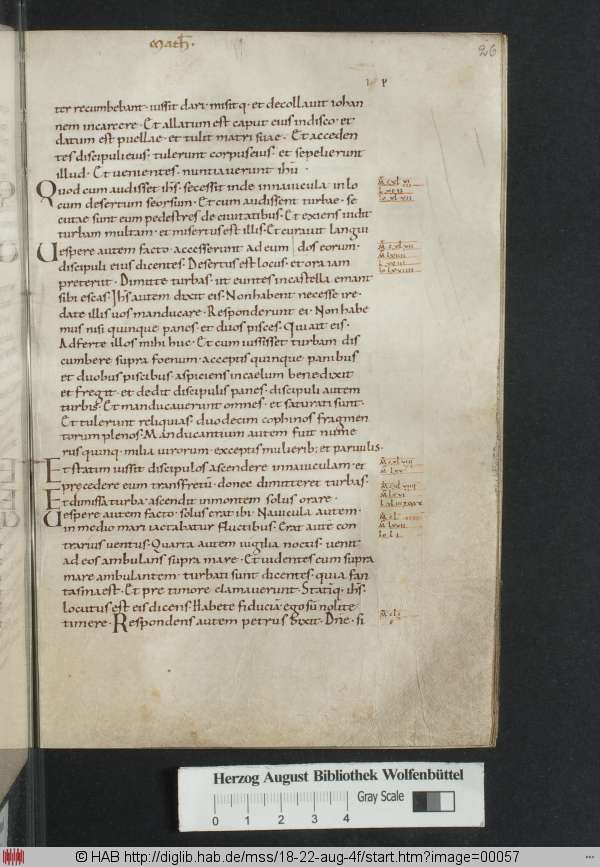 Math̄.
26
ter recumbebant. iussit dari. misitq. et decollauit iohan
nem incarcere. Et allatum est caput eius indisco. et
datum est puellae. et tulit matri suae. Et acceden
tes discipulieius. tulerunt corpuseius. et sepelierunt
illud. Et uenientes. nuntiauerunt ihū.
Quod cum audisset ihs. secessit inde innauicula inlo
cum desertum seorsum. Et cum audissent turbae. se
cutae sunt eum pedestres de ciuitatibus. Et exiens uidit
turbam multam. et misertus est illis. Et curauit langui
Uespere autem facto. accesserunt ad eum | dos eorum.
discipuli eius dicentes. Desertus est locus. et ora iam
preteriit. Dimitte turbas. ut euntes incastella emant
sibi escas. Ihs autem dixit eis. Nonhabent necesse ire.
date illis uos manducare. Responderunt ei. Non habe
mus nisi quinque panes. et duos pisces. Qui ait eis.
Adferte illos mihi huc. Et cum iussisset turbam dis
cumbere supra foenum. acceptis quinque panibus
et duobus piscibus. aspiciens incaelum benedixit
et fregit. et dedit discipulis panes. discipuli autem
turbis. Et manducauerunt omnes. et saturati sunt.
Et tulerunt reliquias. duodecim cophinos fragmen
torum plenos. Manducantium autem fuit nume
rus quinq. milia uirorum. exceptis mulierib; et paruulis.
Et statim iussit discipulos ascendere innauiculam. et
precedere eum transfretū. donec dimitteret turbas.
Et dimissa turba. ascendit inmontem solus orare.
Uespere autem facto. solus erat ibi. Nauicula autem.
in medio mari iactabatur fluctibus. Erat autē con
trarius uentus. Quarta autem uigilia noctis. uenit
ad eos ambulans supra mare. Et uidentes eum supra
mare ambulantem. turbati sunt dicentes. quia fan
tasma est. Et pre timore clamauerunt. Statīq. ihs.
locutus est eis dicens. Habete fiduciā ego sū nolite
timere. Respondens autem petrus dixit. Dne. si
Herzog August Bibliothek Wolfenbüttel
0 1 2 3 4
Gray Scale
© HAB http://diglib.hab.de/mss/18-22-aug-4f/start.htm?image=00057